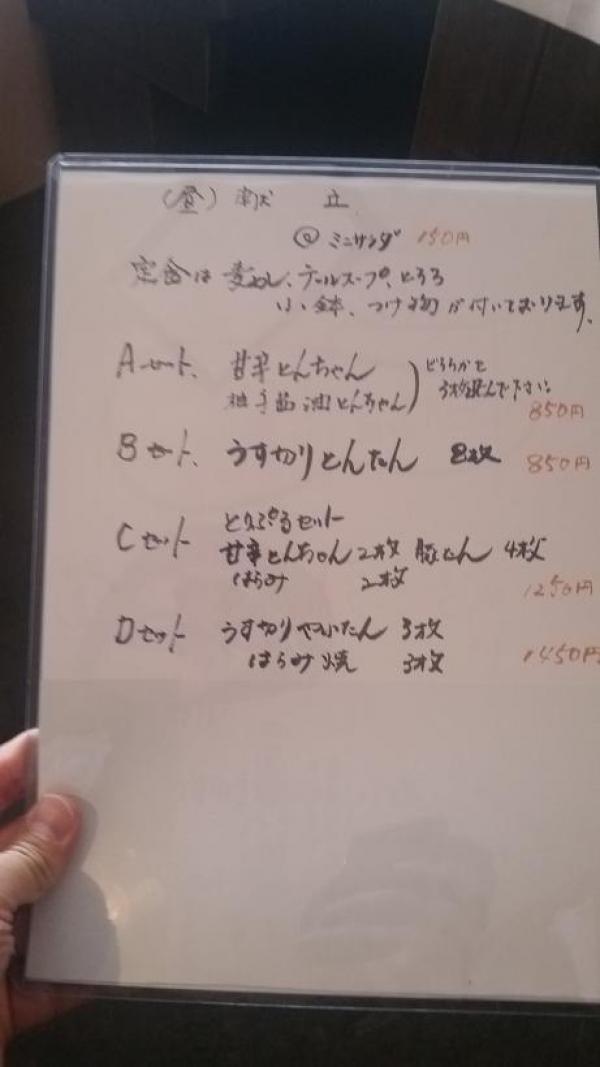 (昼) 献立
◎ ミニサラダ 150円
定食は 麦めし、テールスープ、とろろ
小鉢、つけ物が付いております。
Aセット、甘辛とんちゃん
油とんちゃん
どちらかを
3枚選んで下さい。
850円
Bセット、うす切りとんたん 8枚 850円
とりぷるセット
Cセット 甘辛とんちゃん 2枚 豚たん 4枚
はらみ 2枚
1250円
Dセット うす切り 3枚
はらみ焼 3枚
1450円